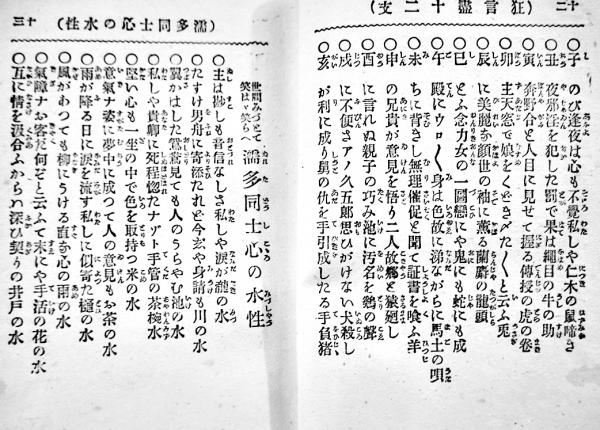 十二 (狂言盡十二支)
○子 のび逢夜は心も不覺私や仁木の鼠啼き
○丑 夜邪淫を犯した罰で果は繩目の牛の助
○寅 奔野合と人目に見せて握る傳授の虎の卷
○卯 主天窓で娘をくどき〆た〱と云ふ兎
○辰 に美麗き顏世の袖に薫る蘭麝の龍頭
○巳 とふ念力女の一圖戀にや鬼にも蛇にも成
○午 殿にウロ〱身は色故に涕ながらに馬士の唄
○未 ちに背きし無理催促と聞て証書を喰ふ羊
○申 の兄貴が意見を悟り二人故鄕と猿廻し
○酉 に言れぬ親子の巧み池に汚名を鷄の鮮
○戌 に不便さアノ久五郎思ひがけない犬殺し
○亥 が利に成り舅の仇を手引成したる手負猪
(濡多同士心の水性) 十三
世間みづとて笑はゞ笑らへ 濡多同士心の水性
○主は捗しも音信なしさ私しや涙が瀧の水
○たすけ男舟に寄添たれど今玄や身請も川の水
○翼かはした鴛意見ても人のうらやむ池の水
○私しや貴卿に死程惚たナゾト手管の茶椀水
○堅い心も一坐の中で色を取持つ米の水
○意氣ナ姿に夢中に成つ人の意見もお茶の水
○雨が降る日に涙を流す私しに似寄た樋の水
○風があつても柳にうける直な心の雨の水
○氣障ナお客だ何ぞと云ふて末にや手活の花の水
○互に情を汲合ふからハ深ひ契りの井戸の水